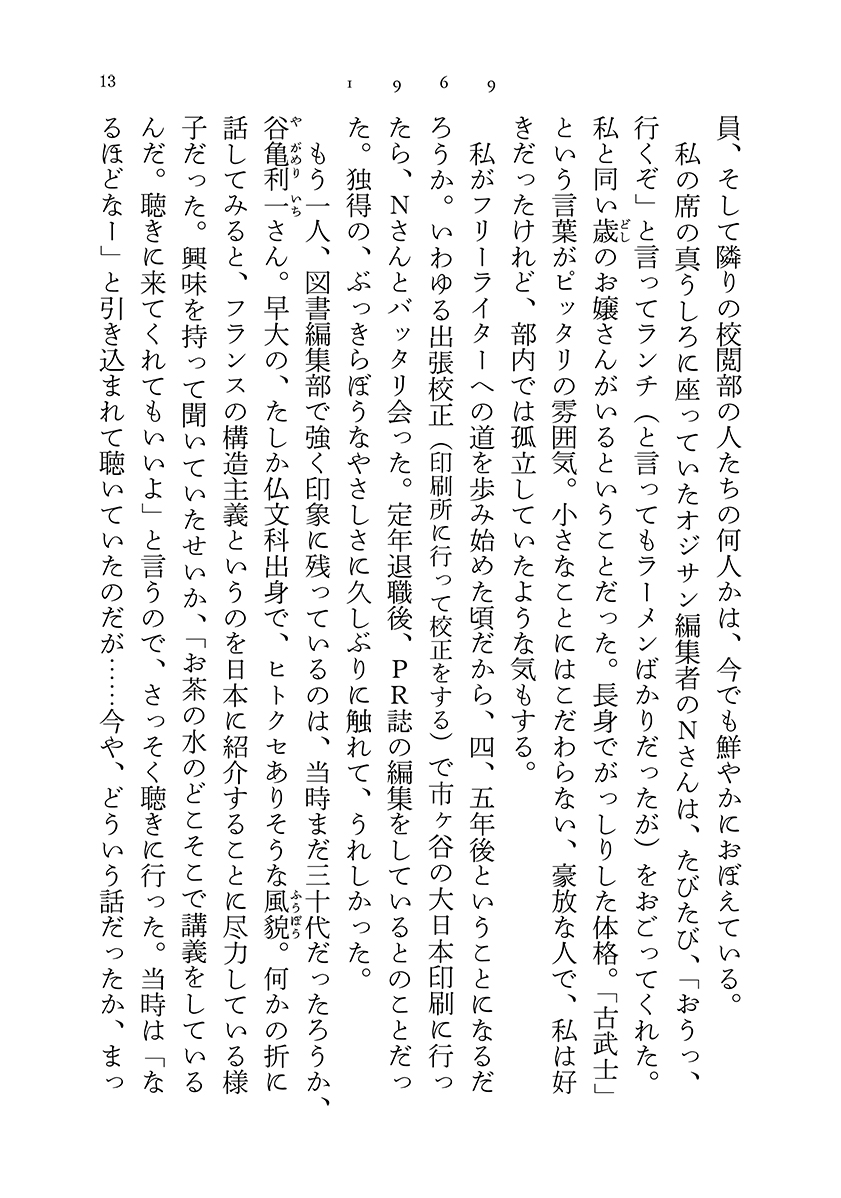 13
1969
員、そして隣りの校閲部の人たちの何人かは、今でも鮮やかにおぼえている。
私の席の真うしろに座っていたオジサン編集者のNさんは、たびたび、「おうっ、
行くぞ」と言ってランチ（と言ってもラーメンばかりだったが）をおごってくれた。
私と同い歳のお嬢さんがいるということだった。長身でがっしりした体格。「古武士」
という言葉がピッタリの雰囲気。小さなことにはこだわらない、豪放な人で、私は好
きだったけれど、部内では孤立していたような気もする。
私がフリーライターへの道を歩み始めた頃だから、四、五年後ということになるだ
ろうか。いわゆる出張校正（印刷所に行って校正をする）で市ヶ谷の大日本印刷に行っ
たら、Nさんとバッタリ会った。定年退職後、PR誌の編集をしているとのことだっ
た。独得の、ぶっきらぼうなやさしさに久しぶりに触れて、うれしかった。
もう一人、図書編集部で強く印象に残っているのは、当時まだ三十代だったろうか、
谷亀利一さん。早大の、たしか仏文科出身で、ヒトクセありそうな風貌。何かの折に
話してみると、フランスの構造主義というのを日本に紹介することに尽力している様
子だった。興味を持って聞いていたせいか、「お茶の水のどこそこで講義をしている
んだ。聴きに来てくれてもいいよ」と言うので、さっそく聴きに行った。当時は「な
るほどなー」と引き込まれて聴いていたのだが……今や、どういう話だったか、まっ